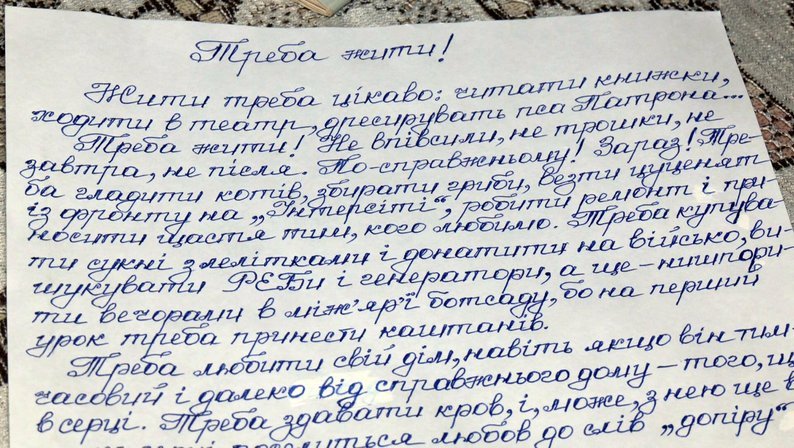 Треба жити!
Жити треба цікаво: читати книжки,
ходити в театр, дресирувать пса Патрона...
Треба жити! Не впівсили, не трошки, не
завтра, не після. По-справжньому! Зараз! Тре-
ба гладити котів, збирати гриби, везти цуценят
із фронту на „Інтерсіті“, робити ремонт і при-
носити щастя тим, кого любимо. Треба купува-
ти сукні з лелітками і донатити на військо, ви-
шукувати РЕБи і генератори, а ще – нишпори-
ти вечорами в між'яр'ї ботсаду, бо на перший
урок треба принести каштанів.
Треба любити свій дім, навіть якщо він тим-
часовий і далеко від справжнього дому – того, що
в серці. Треба здавати кров, і, може, з нею ще в
серці любов до слів „допіру“